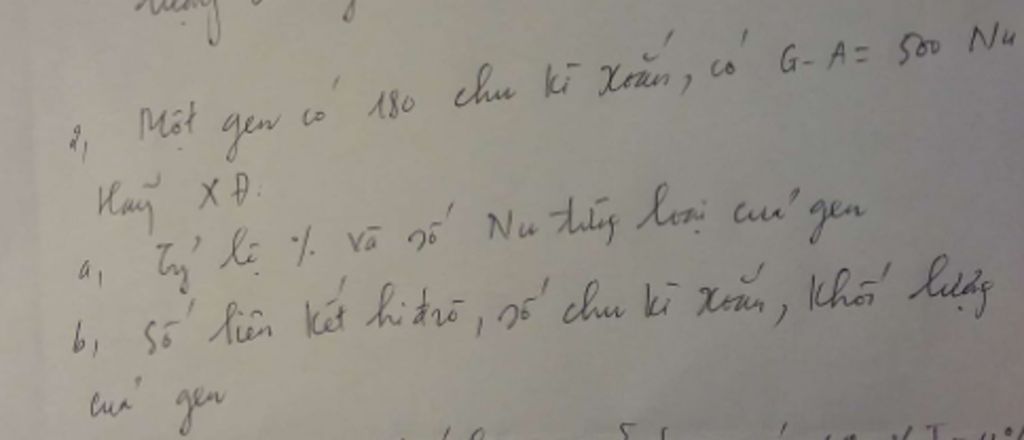 2, Một gen có 180 chu kì xoắn, có G - A = 500 Nu
Hãy XĐ:
a, Tỷ lệ % và số Nu từng loại của gen
b, Số liên kết hiđrô, số chu kì xoắn, khối lượng
của gen